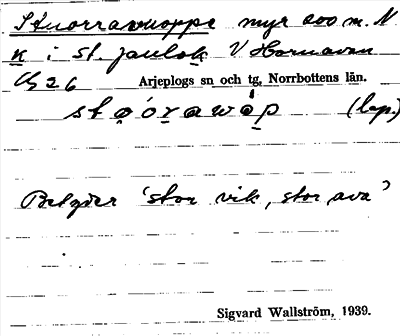 Stuorravuoppe myr 200 m. N
K i St. Jaulok V Hornavan
Ch 26 Arjeplogs sn och tg, Norrbottens län.
stǫórawåp (lap.)
Betyder 'stor vik, stor ava'
Sigvard Wallström, 1939.